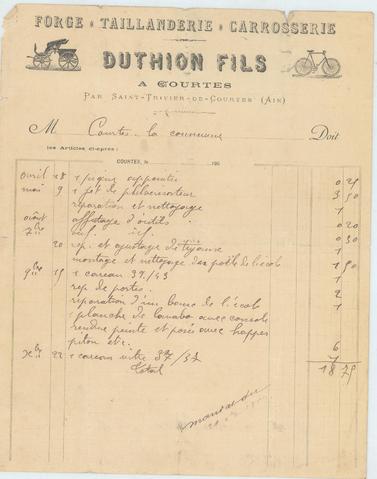 FORGE * TAILLANDERIE * CARROSSERIE
DUTHION FILS
A COURTES
PAR SAINT-TRIVIER-DE-COURTES (AIN)
M Courtes la commune Doit
les Articles ci-après :
COURTES, le 190
avril 18 1 pique 0 25
mai 9 1 pot de 3 50
réparation et nettoyage 1
août affutage d'outils 0 20
7bre id. id. 0 30
20 rep. et ajustage de 1
montage et nettoyage des poêle de l'école 1 50
9bre 15 1 carreau 39/43 1
rep. de portes 2
réparation d'un banc de l'école 1
1 planche de avec console
rendue peinte et posée avec happes
piton etc. 6
Xbre 22 1 carreau vitre 37/37 1
Total 18 75